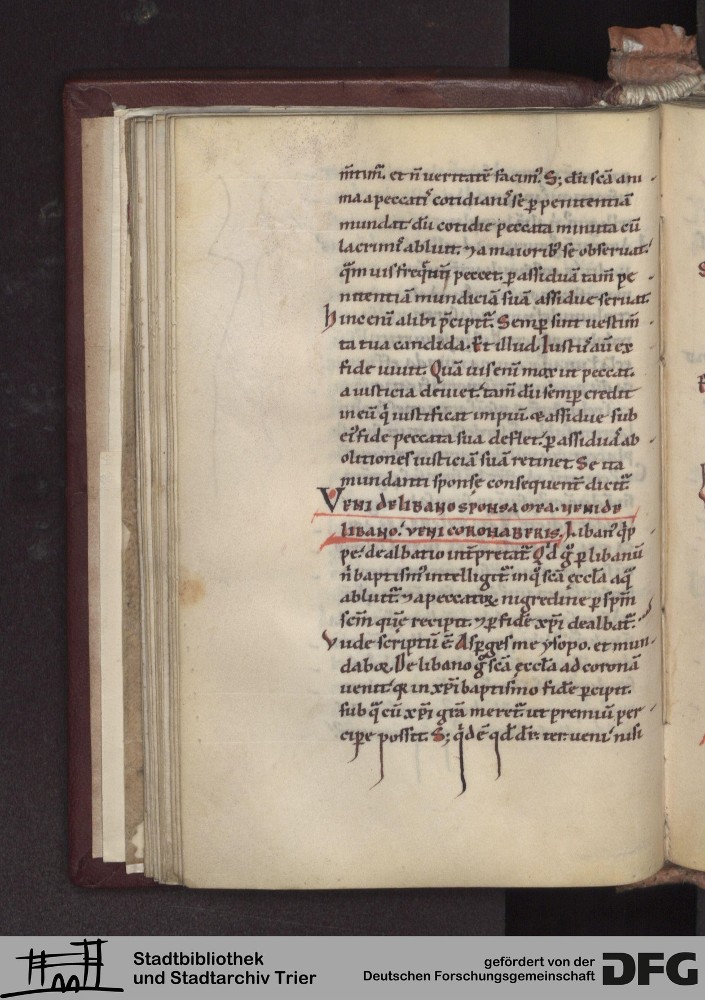 m̄tim̄. et n̄ veritatē facim᷒. S; dū sc̄a ani
ma a peccatis cotidianis se p penitentiā
mundat. dū cotidie peccata minuta cū
lacrimis abluit. ⁊ a maiorib; se observat.
qm̄ vis freqn̄t peccet. p assiduā tam̄ pe
nitentiā mundiciā suā assidue servat.
Hinc eni alibi p̄cipit̄. Semp sint vestim̄
ta tua candida. Et illud. Iustus aū ex
fide vivit. Quā vis eni mox ut peccat.
a iusticia deviet. tam̄ dū semp credit
in eū q iustificat impiū. & assidue sub
ei᷒ fide peccata sua deflet. p assiduas ab
olitiones iusticiā suā retinet. Se ita
mundanti sponse consequent̄ dicit̄.
Veni de libano sponsa mea. veni de
libano. veni coronaberis. Liban᷒ qp
pe. dealbatio int̄pretat̄. Qd g p libanū
n̄ baptism᷒ intelligit̄. in q sc̄a ęccła aq
abluit̄. ⁊ a peccatoꝝ nigredine p spm̄
scm̄ quē recipit. ⁊ p fidē xp̄i dealbat̄.
Vnde scriptū ē. Asperges me ysopo. et mun
dabor. De libano g sc̄a ęccła ad coronā
venit. q in xp̄i baptismo fidē pcipit.
sub q cū xp̄i grām meret̄. ut premiū per
cipere possit. S; qd ē qd dr̄. ter. veni. nisi
Stadtbibliothek
und Stadtarchiv Trier
gefördert von der
Deutschen Forschungsgemeinschaft
DFG